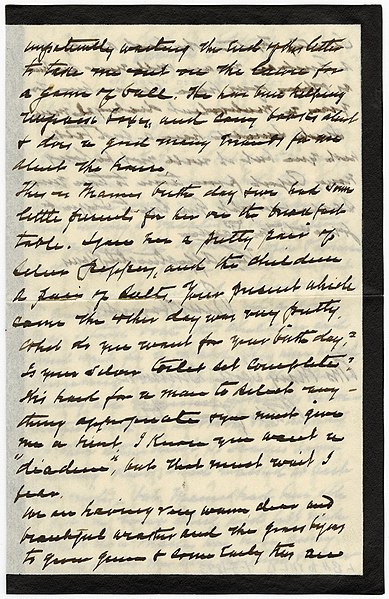 impatiently waiting the end of this letter
to take me out on the lawn for
a game of ball. He has been helping
unpack boxes, and carry books about
& does a good many errands for me
about the house.
This is Mamas birth day & we had some
little presents for her on the breakfast
table. I gave her a pretty pair of
silver peppers, and the children
a pair of salts. Your present which
came the other day was very pretty.
What do you want for your birth day,?
Is your silver toilet set complete?
His hard for a man to select any-
thing appropriate & you must give
me a hint. I know you want a
"diadem", but that must wait I
fear.
We are having very warm clear and
beautiful weather and the grass begins
to grow green & come early this